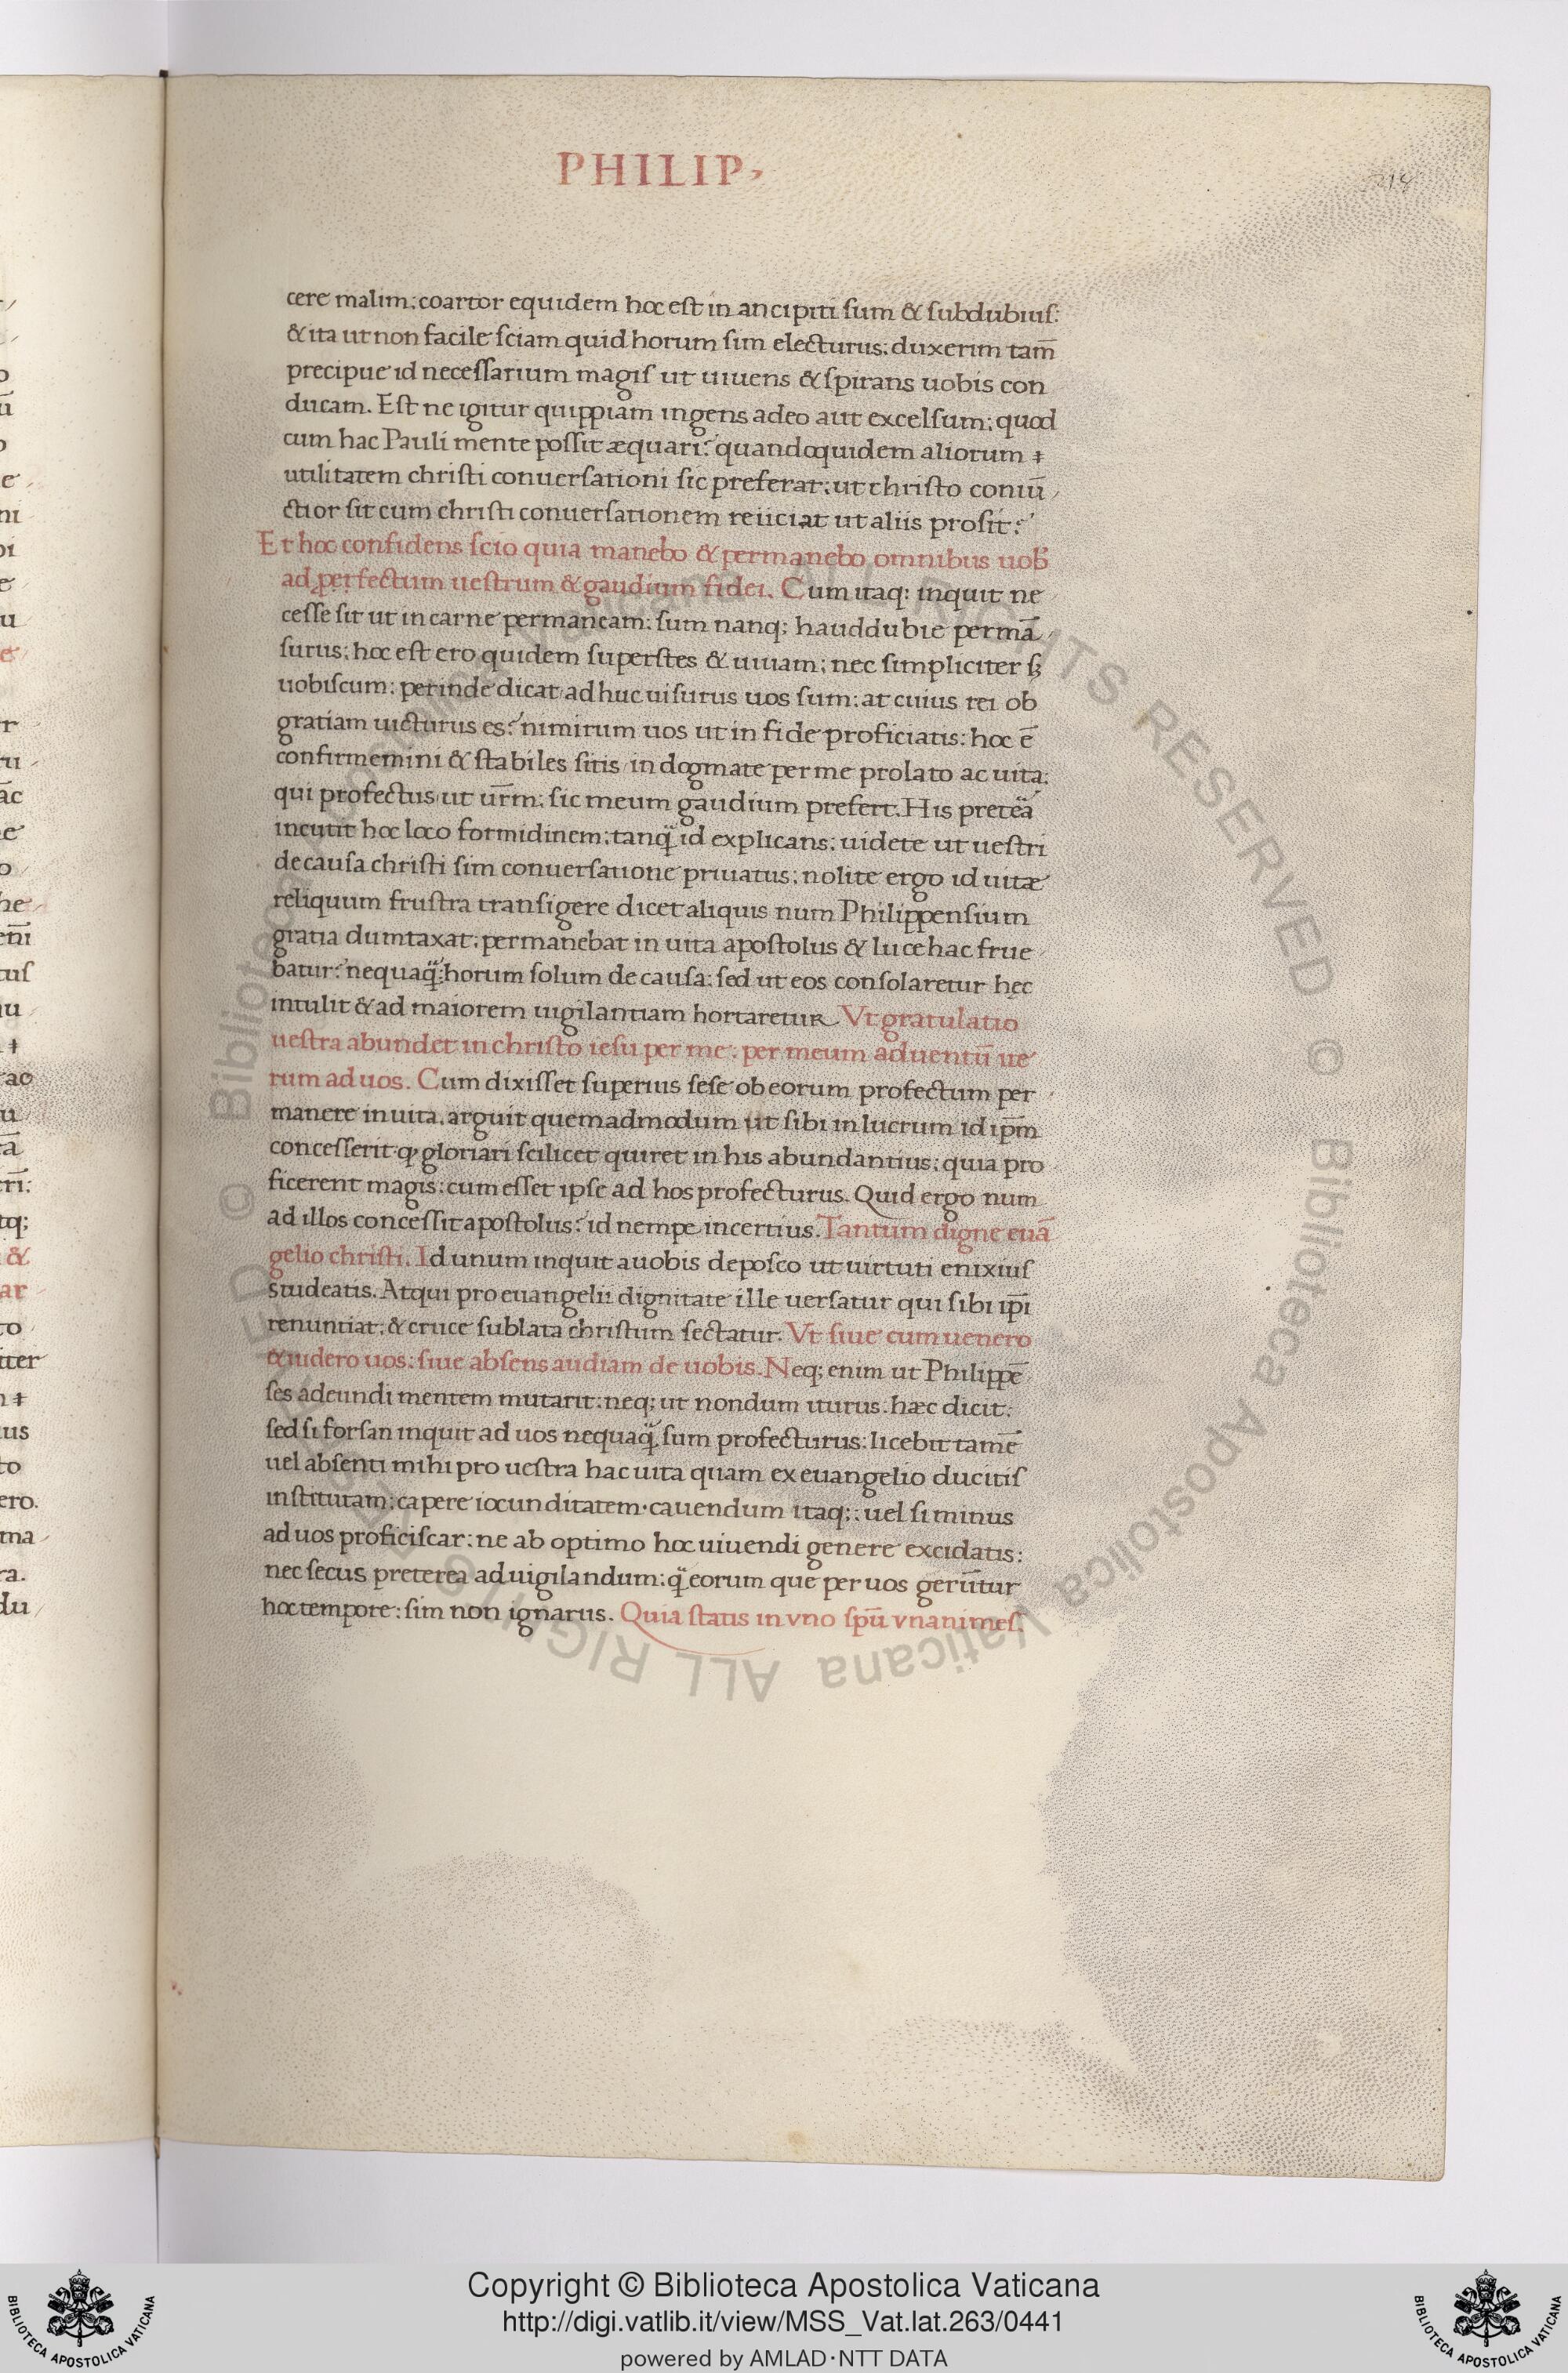 PHILIP,
218
cere malim: coartor equidem hoc est in ancipiti sum & subdubius:
& ita ut non facile sciam quid horum sim electurus: duxerim tam̅
precipue id necessarium magis ut uiuens & spirans uobis con
ducam. Est ne igitur quippiam ingens adeo aut excelsum: quod
cum hac Pauli mente possit æquari? quandoquidem aliorum
utilitatem christi conuersationi sic preferat: ut christo coniu̅
ctior sit cum christi conuersationem reiiciat ut aliis prosit?
Et hoc confidens scio quia manebo & permanebo omnibus uob
ad perfectum uestrum & gaudium fidei. Cum itaq: inquit ne
cesse sit ut in carne permaneam: sum nanq; haud dubie perma̅
surus: hoc est ero quidem superstes & uiuam: nec simpliciter sꝫ
uobiscum: perinde dicat adhuc uisurus uos sum: at cuius rei ob
gratiam uicturus es? nimirum uos ut in fide proficiatis: hoc e̅
confirmemini & stabiles sitis in dogmate per me prolato ac uita:
qui profectus ut ur̅m: sic meum gaudium prefert. His preterea
incutit hoc loco formidinem: tanq̃ id explicans: uidete ut uestri
de causa christi sim conuersatione priuatus: nolite ergo id uitæ
reliquum frustra transigere dicet aliquis num Philippensium
gratia dumtaxat: permanebat in uita apostolus & luce hac frue
batur? nequaq̃: horum solum de causa: sed ut eos consolaretur hec
intulit & ad maiorem uigilantiam hortaretur Vt gratulatio
uestra abundet in christo iesu per me: per meum aduentu̅ ue
rum ad uos. Cum dixisset superius sese ob eorum profectum per
manere in uita. arguit quemadmodum ut sibi in lucrum id ip̅m
concesserit: ꝙ gloriari scilicet quiret in his abundantius: quia pro
ficerent magis: cum esset ipse ad hos profecturus. Quid ergo num
ad illos concessit apostolus? id nempe incertius. Tantum digne eua̅
gelio christi. Id unum inquit a uobis deposco ut uirtuti enixius
studeatis. Atqui pro euangelii dignitate ille uersatur qui sibi ip̅i
renuntiat: & cruce sublata christum sectatur. Vt siue cum uenero
& uidero uos: siue absens audiam de uobis. Neq; enim ut Philippe̅
ses adeundi mentem mutarit: neq; ut nondum iturus: hæc dicit:
sed si forsan inquit ad uos nequaq̃ sum profecturus: licebit tame̅
uel absenti mihi pro uestra hac uita quam ex euangelio ducitis
institutam: capere iocunditatem. cauendum itaq;: uel si minus
ad uos proficiscar: ne ab optimo hoc uiuendi genere excidatis:
nec secus preterea aduigilandum: q̃ eorum que per uos geru̅tur
hoc tempore: sim non ignarus. Quia statis in vno spu̅ vnanimes.
Copyright © Biblioteca Apostolica Vaticana
http://digi.vatlib.it/view/MSS_Vat.lat.263/0441
powered by AMLAD·NTT DATA